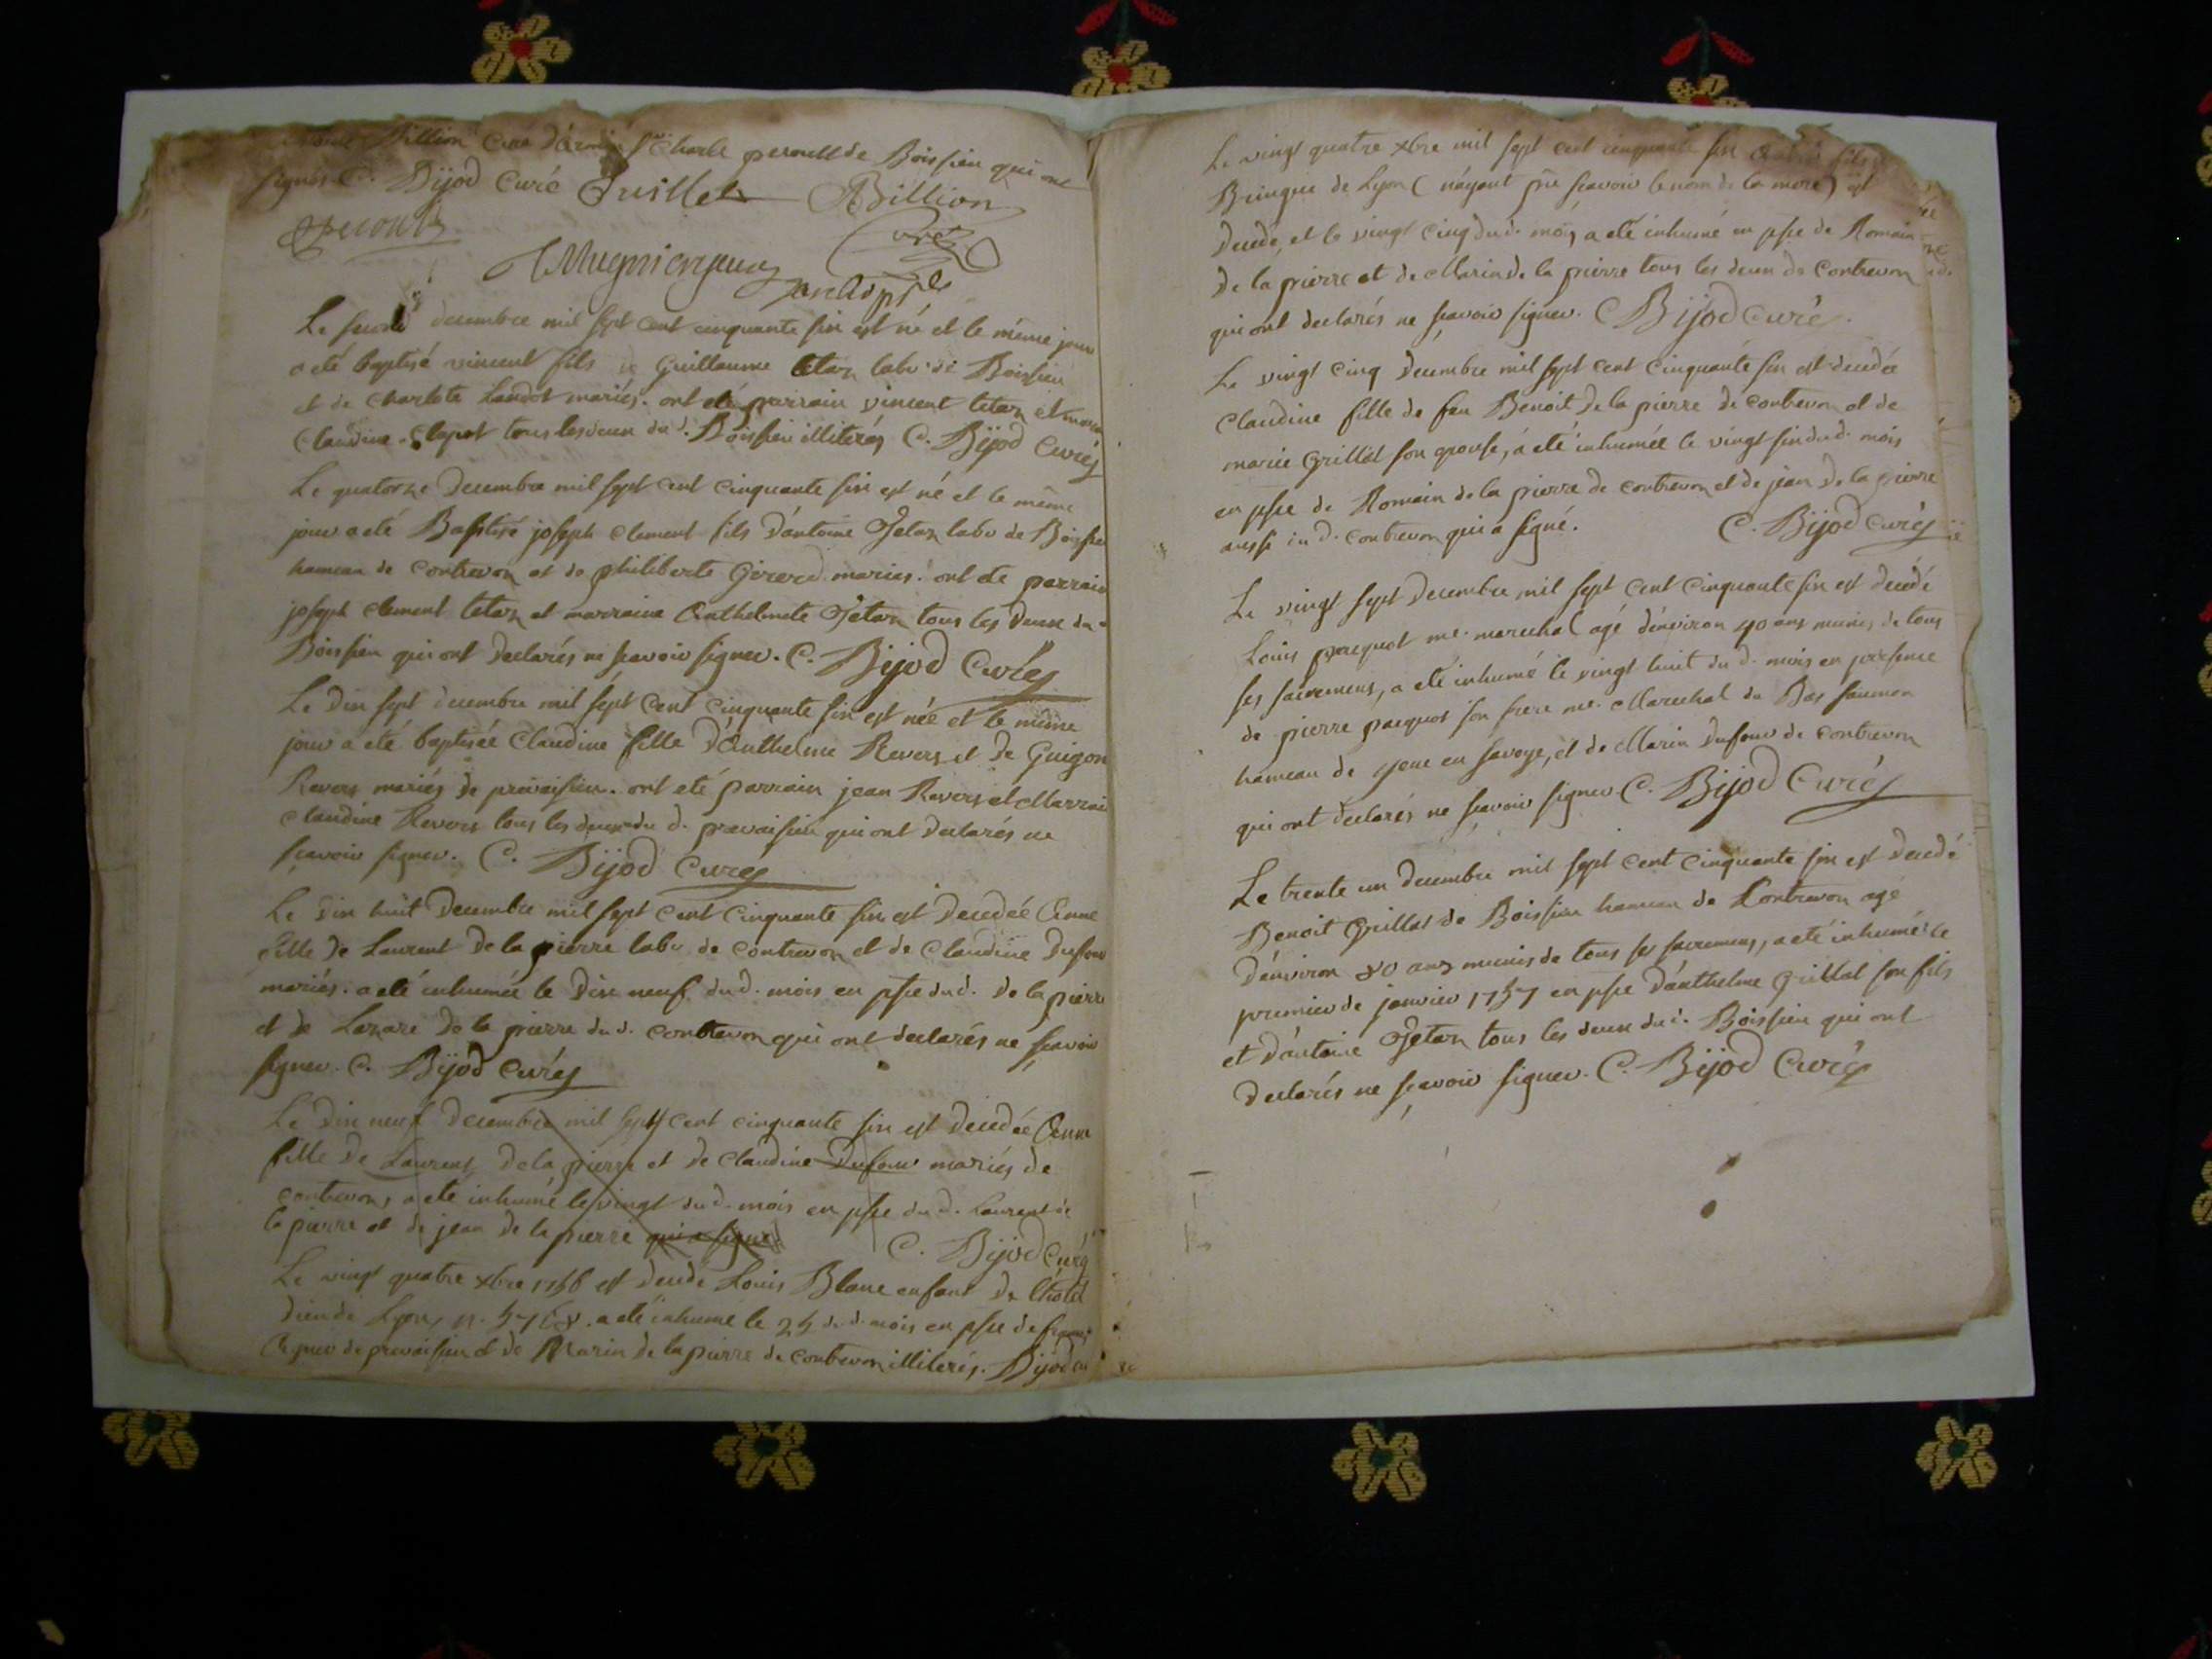 Billion Curé Charle perouse de Boissieu qui ont
signés C. Bijod Curé Juillet ABillion
Curé
Le second decembre mil sept cent cinquante six est né et le même jour
a eté baptisé vincent fils de Guillaume tetaz labr de Boissieu
et de charlote Landot mariés. ont eté parrain vincent tetaz et
Claudine Clapot tous les deux du d. Boissieu illiterés C. Bijod Curés
Le quatorze Decembre mil sept cent cinquante six est né et le même
jour a eté Baptisé joseph clement fils d'antoine Tetaz labr de Boissieu
hameau de contrevoz et de philiberte Girerd mariés. ont ete parrain
joseph clement tetaz et marraine Anthelmete Tetaz tous les deux du d.
Boissieu qui ont declarés ne sçavoir signer. C. Bijod Curés
Le Dix sept decembre mil sept cent cinquante six est née et le même
jour a eté baptisée Claudine fille d'Anthelme Revers et de Guigon
Revers mariés de prévaisieu. ont eté parrain jean Revers et Marraine
Claudine Revers tous les deux du d. prevaisieu qui ont declarés ne
sçavoir signer. C. Bijod Curés
Le Dix huit Decembre mil sept cent Cinquante six est Decedée Anne
fille de Laurent De la pierre labr de contrevoz et de Claudine Dufour
mariés. a eté inhumée le Dix neuf du d. mois en pnce du d. De la pierre
et de Lazare De la pierre du d. contrevoz qui ont declarés ne sçavoir
signer. C. Bijod Curés
Le Dix neuf Decembre mil sept cent cinquante six est Decedée Anne
fille De Laurent De la pierre et de Claudine Dufour mariés de
contrevoz, a eté inhumé le vingt du d. mois en pnce du d. Laurent de
la pierre et de jean De la pierre qui a signé
C. Bijod Curé
Le vingt quatre xbre 1756 est decedé Louis Blanc enfant De l'hotel
dieu de Lyon, a eté inhume le 25 du d. mois en pnce de
de prevaisieu et de Marin De la pierre de contrevoz illiterés. Bijod cu
Le vingt quatre xbre mil sept cent cinquante six fils
Bringue de Lyon (n'ayant pû sçavoir le nom de la mere) est
Decedé, et le vingt cinq du d. mois a eté inhumé en pnce de Romain
De la pierre et de Marin de la pierre tous les deux de Contrevoz
qui ont declarés ne sçavoir signer. C Bijod Curé.
Le vingt cinq Decembre mil sept cent cinquante six est decedée
Claudine fille de feu Benoit De la pierre de contrevoz et de
marie Grillet son epouse, a eté inhumée le vingt six du d. mois
en pnce de Romain de la pierre de contrevoz et de jean De la pierre
aussi du d. contrevoz qui a signé. C. Bijod Curés
Le vingt sept Decembre mil sept cent cinquante six est decedé
Louis pacquot me. marechal agé d'environ 40 ans munis de tous
ses sacremens, a eté inhumé le vingt huit du d. mois en presence
de pierre pacquot son frere me. Marechal du Bas saumon
hameau de yenne en savoye, et de Marin Dufour de contrevoz
qui ont declarés ne sçavoir signer C. Bijod Curés
Le trente un Decembre mil sept cent cinquante six est decedé
Benoit Grillat de Boissieu hameau de Contrevoz agé
d'environ 80 ans munis de tous ses sacremens, a eté inhumé le
premier de janvier 1757 en pnce d'anthelme Grillat son fils
et d'antoine Tetaz tous les deux du d. Boissieu qui ont
declarés ne sçavoir signer. C. Bijod Curés